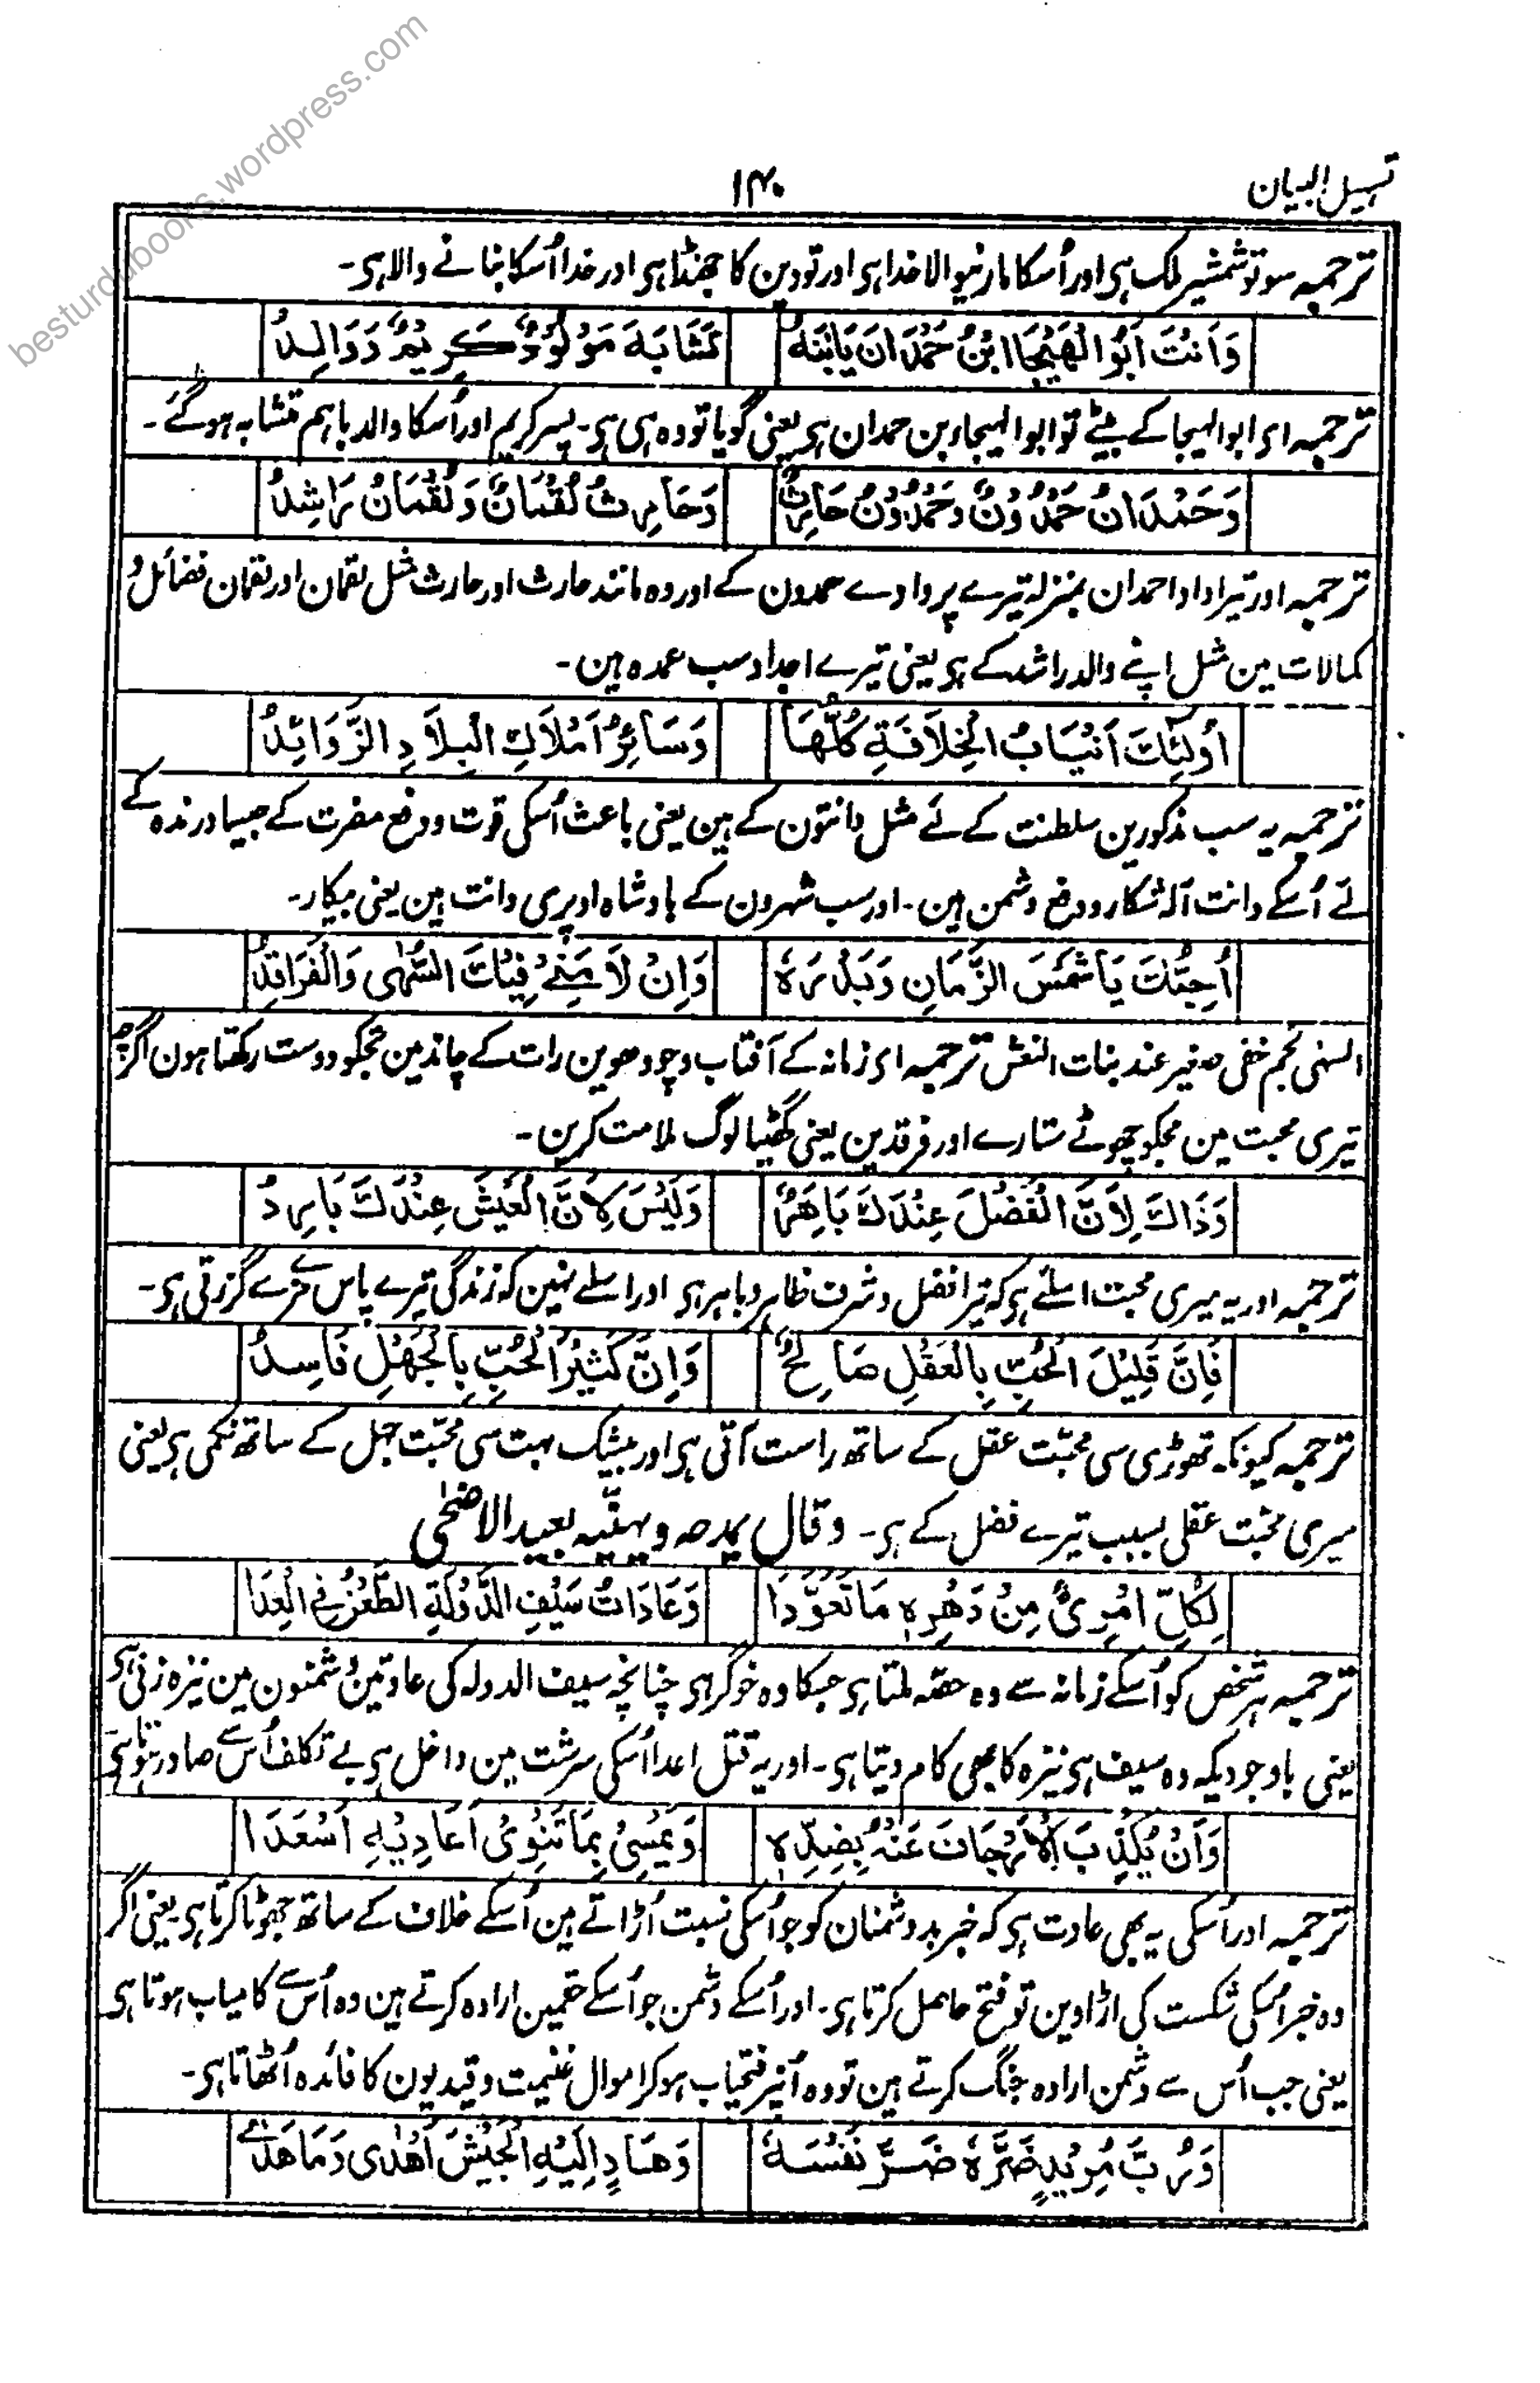 besturdubooks.wordpress.com
تسہیل البیان
۱۴۰
ترجمہ سو تو شمشیر ملک ہی اور اُسکا مارنیوالا خدا ہی اور تو دین کا جھنڈا ہی اور خدا اُسکا بنانے والا ہی۔
وَاَنْتَ اَبُوالْهَيْجَا ابْنُ حَمْدَانَ يَا ابْنَهٗ تَشَابَهَ مَوْلُوْدٌ كَرِيْمٌ وَوَالِدُ
ترجمہ ای ابو الہیجا کے بیٹے تو ابو الہیجاء بن حمدان ہی یعنی گویا تو وہ ہی ہی۔ پسر کریم اور اُسکا والد باہم متشابہ ہو گئے۔
وَحَمْدَانُ حَمْدُوْنٌ وَحَمْدُوْنُ حَارِثٌ وَحَارِثُ لُقْمَانٌ وَلُقْمَانُ رَاشِدُ
ترجمہ اور تیرا دادا حمدان بمنزلہ تیرے پردادے حمدون کے اور وہ مانند حارث اور حارث مثل لقمان اور لقمان فضائل و
کمالات مین مثل اپنے والد راشد کے ہی یعنی تیرے اجداد سب عمدہ ہین۔
اُولٰئِكَ اَنْيَابُ الْخِلَافَةِ كُلُّهَا وَسَائِرُ اَمْلَاكِ الْبِلَادِ الزَّوَائِدُ
ترجمہ یہ سب مذکورین سلطنت کے لئے مثل دانتون کے ہین یعنی باعث اُسکی قوت و دفع مضرت کے جیسا درندہ کے
لئے اُسکے دانت آلہ شکار و دفع دشمن ہین۔ اور سب شہرون کے بادشاہ اوپری دانت ہین یعنی بیکار۔
اُحِبُّكَ يَا شَمْسَ الزَّمَانِ وَبَدْرَهٗ وَاِنْ لَامَنِيْ فِيْكَ السُّهٰى وَالْفَرَاقِدُ
السہی نجم خفی صغیر عند بنات النعش ترجمہ ای زمانہ کے آفتاب و چودھوین رات کے چاند مین تجکو دوست رکھتا ہون اگرچہ
تیری محبت مین مجکو چھوٹے ستارے اور فرقدین یعنی گھٹیا لوگ ملامت کرین۔
وَذَاكَ لِاَنَّ الْفَضْلَ عِنْدَكَ بَاهِرٌ وَلَيْسَ لِاَنَّ الْعَيْشَ عِنْدَكَ بَارِدُ
ترجمہ اور یہ میری محبت اسلئے ہی کہ تیرا فضل و شرف ظاہر و باہر ہی اور اسلئے نہین کہ زندگی تیرے پاس مزے سے گزرتی ہی۔
فَاِنَّ قَلِيْلَ الْحُبِّ بِالْعَقْلِ صَالِحٌ وَاِنَّ كَثِيْرَ الْحُبِّ بِالْجَهْلِ فَاسِدُ
ترجمہ کیونکہ تھوڑی سی محبّت عقل کے ساتھ راست آتی ہی اور بیشک بہت سی محبّت جہل کے ساتھ نکمی ہی یعنی
میری محبّت عقلی بسبب تیرے فضل کے ہی۔ وقال یمدحہ ویہنّیہ بعید الاضحٰی
لِكُلِّ امْرِئٍ مِنْ دَهْرِهٖ مَا تَعَوَّدَا وَعَادَاتُ سَيْفِ الدَّوْلَةِ الطَّعْنُ فِي الْعِدَا
ترجمہ ہر شخص کو اُسکے زمانہ سے وہ حصّہ ملتا ہی جسکا وہ خوگر ہی چنانچہ سیف الدولہ کی عادتین دشمنون مین نیزہ زنی ہی
یعنی باوجودیکہ وہ سیف ہی نیزہ کا بھی کام دیتا ہی۔ اور یہ قتل اعدا اُسکی سرشت مین داخل ہی بے تکلف اُس سے صادر ہوتا ہی
وَاَنْ يُكْذِبَ الْاِرْجَافَ عَنْهُ بِضِدِّهٖ وَيُمْسِيْ بِمَا تَنْوِيْ اَعَادِيْهِ اَسْعَدَا
ترجمہ اور اُسکی یہ بھی عادت ہی کہ خبر بد دشمنان کو جو اُسکی نسبت اُڑاتے ہین اُسکے خلاف کے ساتھ جھوٹا کرتا ہی۔ یعنی اگر
وہ خبر اُسکی شکست کی اڑاوین تو فتح حاصل کرتا ہی۔ اور اُسکے دشمن جو اُسکے حقمین ارادہ کرتے ہین وہ اُس سے کامیاب ہوتا ہی
یعنی جب اُس سے دشمن ارادہ جنگ کرتے ہین تو وہ اُنپر فتحیاب ہو کر اموال غنیمت و قیدیون کا فائدہ اُٹھاتا ہی۔
وَرُبَّ مُرِيْدٍ ضَرَّهٗ ضَرَّ نَفْسَهٗ وَهَادٍ اِلَيْهِ الْجَيْشَ اَهْدٰى وَمَا هَدٰى